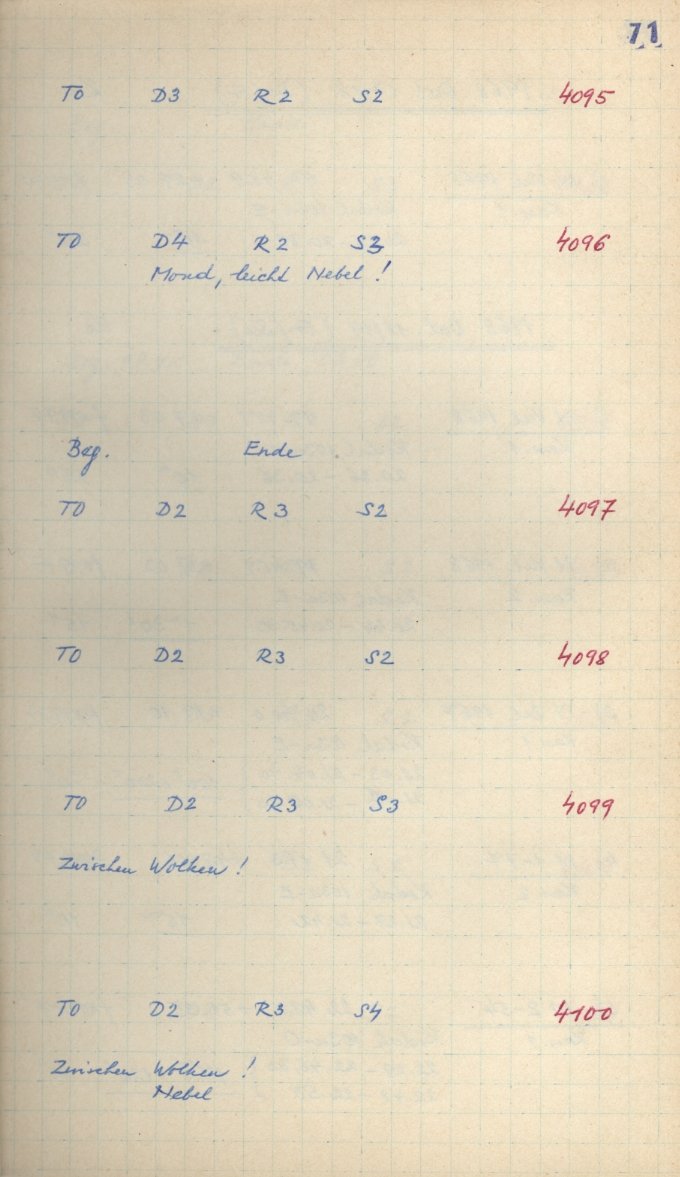 71
TO D3 R2 S2 4095
TO D4 R2 S3 4096
Mond, leicht Nebel!
Beg. Ende
TO D2 R3 S2 4097
TO D2 R3 S2 4098
TO D2 R3 S3 4099
Zwischen Wolken!
TO D2 R3 S4 4100
Zwischen Wolken!
Nebel